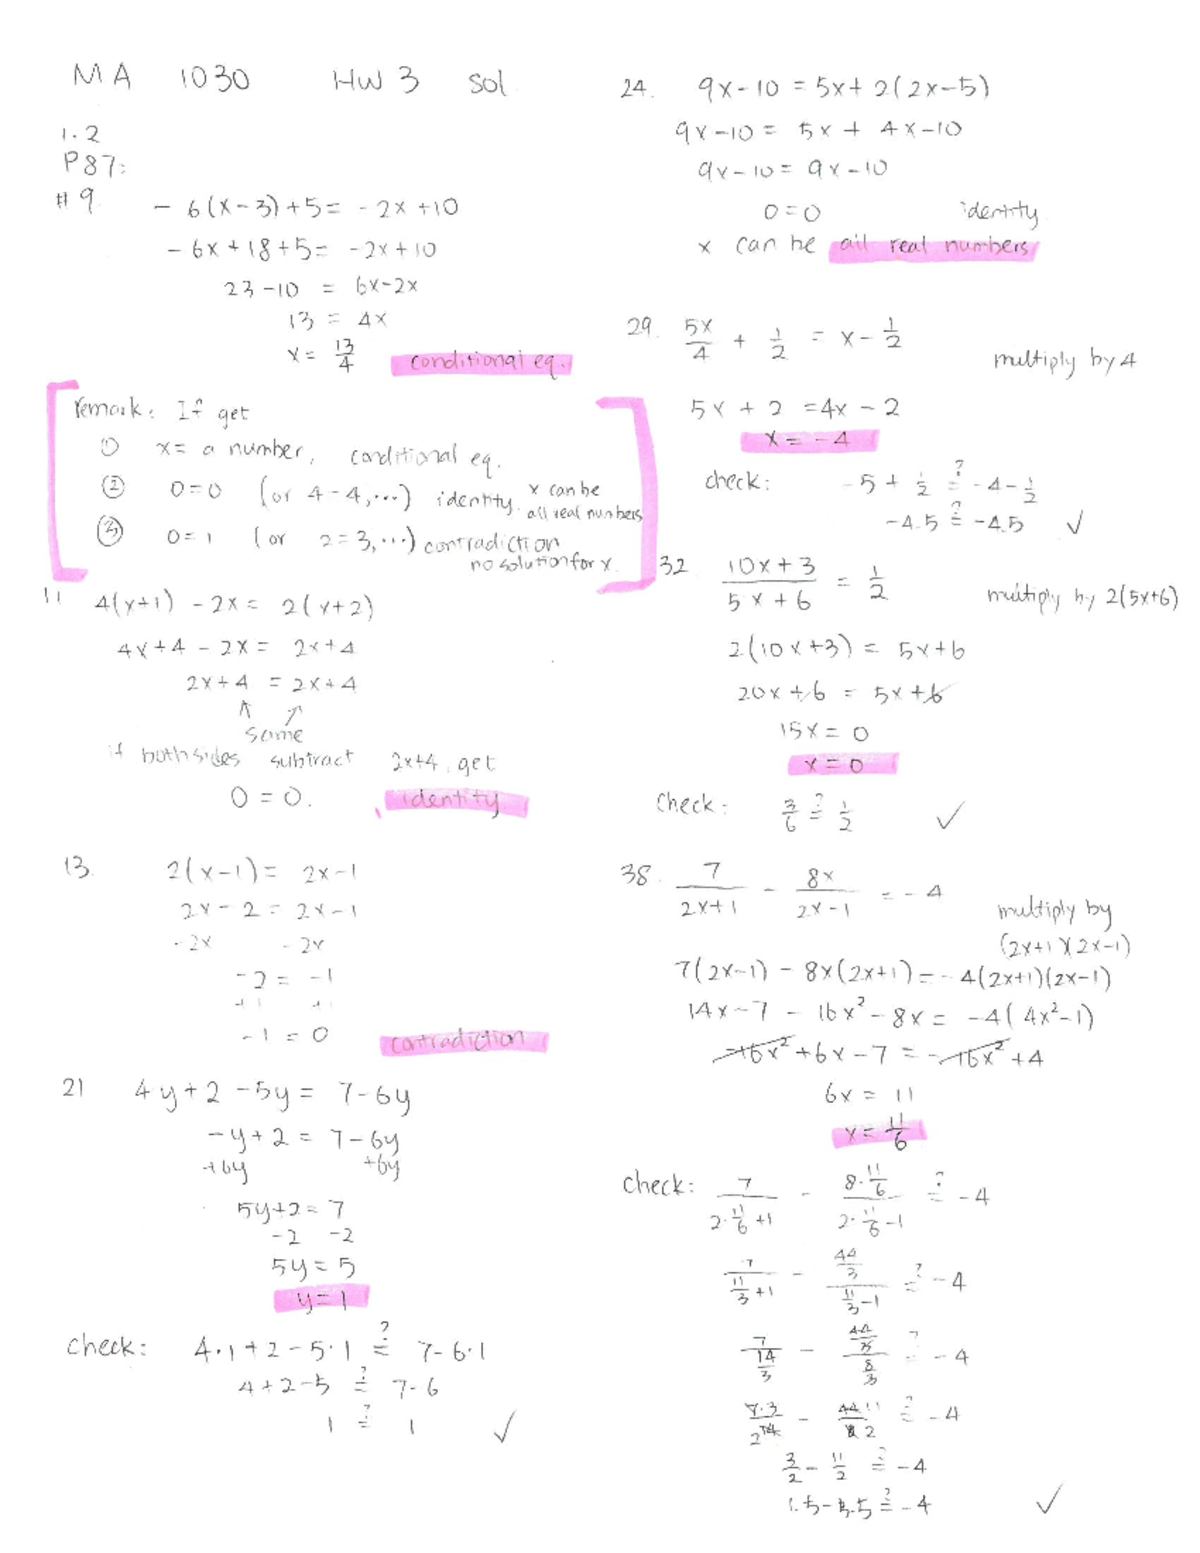 MA 1030 HW 3 sol
1.2
P87:
#9. - 6(x-3)+5 = -2x+10
- 6x+18+5 = -2x+10
23-10 = 6x-2x
13 = 4x
x = 13/4 conditional eq.
remark: If get
① x = a number, conditional eq.
② 0=0 (or 4-4,...) identity. x can be all real numbers
③ 0=1 (or 2=3,...) contradiction no solution for x.
11 4(x+1) - 2x = 2(x+2)
4x+4 - 2x = 2x+4
2x+4 = 2x+4
↑ ↑
same
if both sides subtract 2x+4, get
0 = 0. identity
13. 2(x-1) = 2x-1
2x-2 = 2x-1
-2x -2x
-2 = -1
+1 +1
-1 = 0 contradiction
21 4y+2-5y = 7-6y
-y+2 = 7-6y
+6y +6y
5y+2 = 7
-2 -2
5y = 5
y = 1
check: 4·1+2-5·1 ≟ 7-6·1
4+2-5 ≟ 7-6
1 ≟ 1 ✓
24. 9x-10 = 5x+2(2x-5)
9x-10 = 5x + 4x-10
9x-10 = 9x-10
0=0 identity
x can be all real numbers
29. 5x/4 + 1/2 = x - 1/2
multiply by 4
5x + 2 = 4x - 2
x = -4
check: -5 + 1/2 ≟ -4 - 1/2
-4.5 ≟ -4.5 ✓
32 (10x+3)/(5x+6) = 1/2 multiply by 2(5x+6)
2(10x+3) = 5x+6
20x+6 = 5x+6
15x = 0
x = 0
check: 3/6 ≟ 1/2 ✓
38. 7/(2x+1) - 8x/(2x-1) = -4
multiply by
(2x+1)(2x-1)
7(2x-1) - 8x(2x+1) = -4(2x+1)(2x-1)
14x-7 - 16x²-8x = -4(4x²-1)
-16x²+6x-7 = -16x²+4
6x = 11
x = 11/6
check: 7/(2·11/6+1) - (8·11/6)/(2·11/6-1) ≟ -4
7/(11/3+1) - (44/3)/(11/3-1) ≟ -4
7/(14/3) - (44/3)/(8/3) ≟ -4
7·3/14 2 - 44 11/8 2 ≟ -4
3/2 - 11/2 ≟ -4
1.5-5.5 ≟ -4 ✓